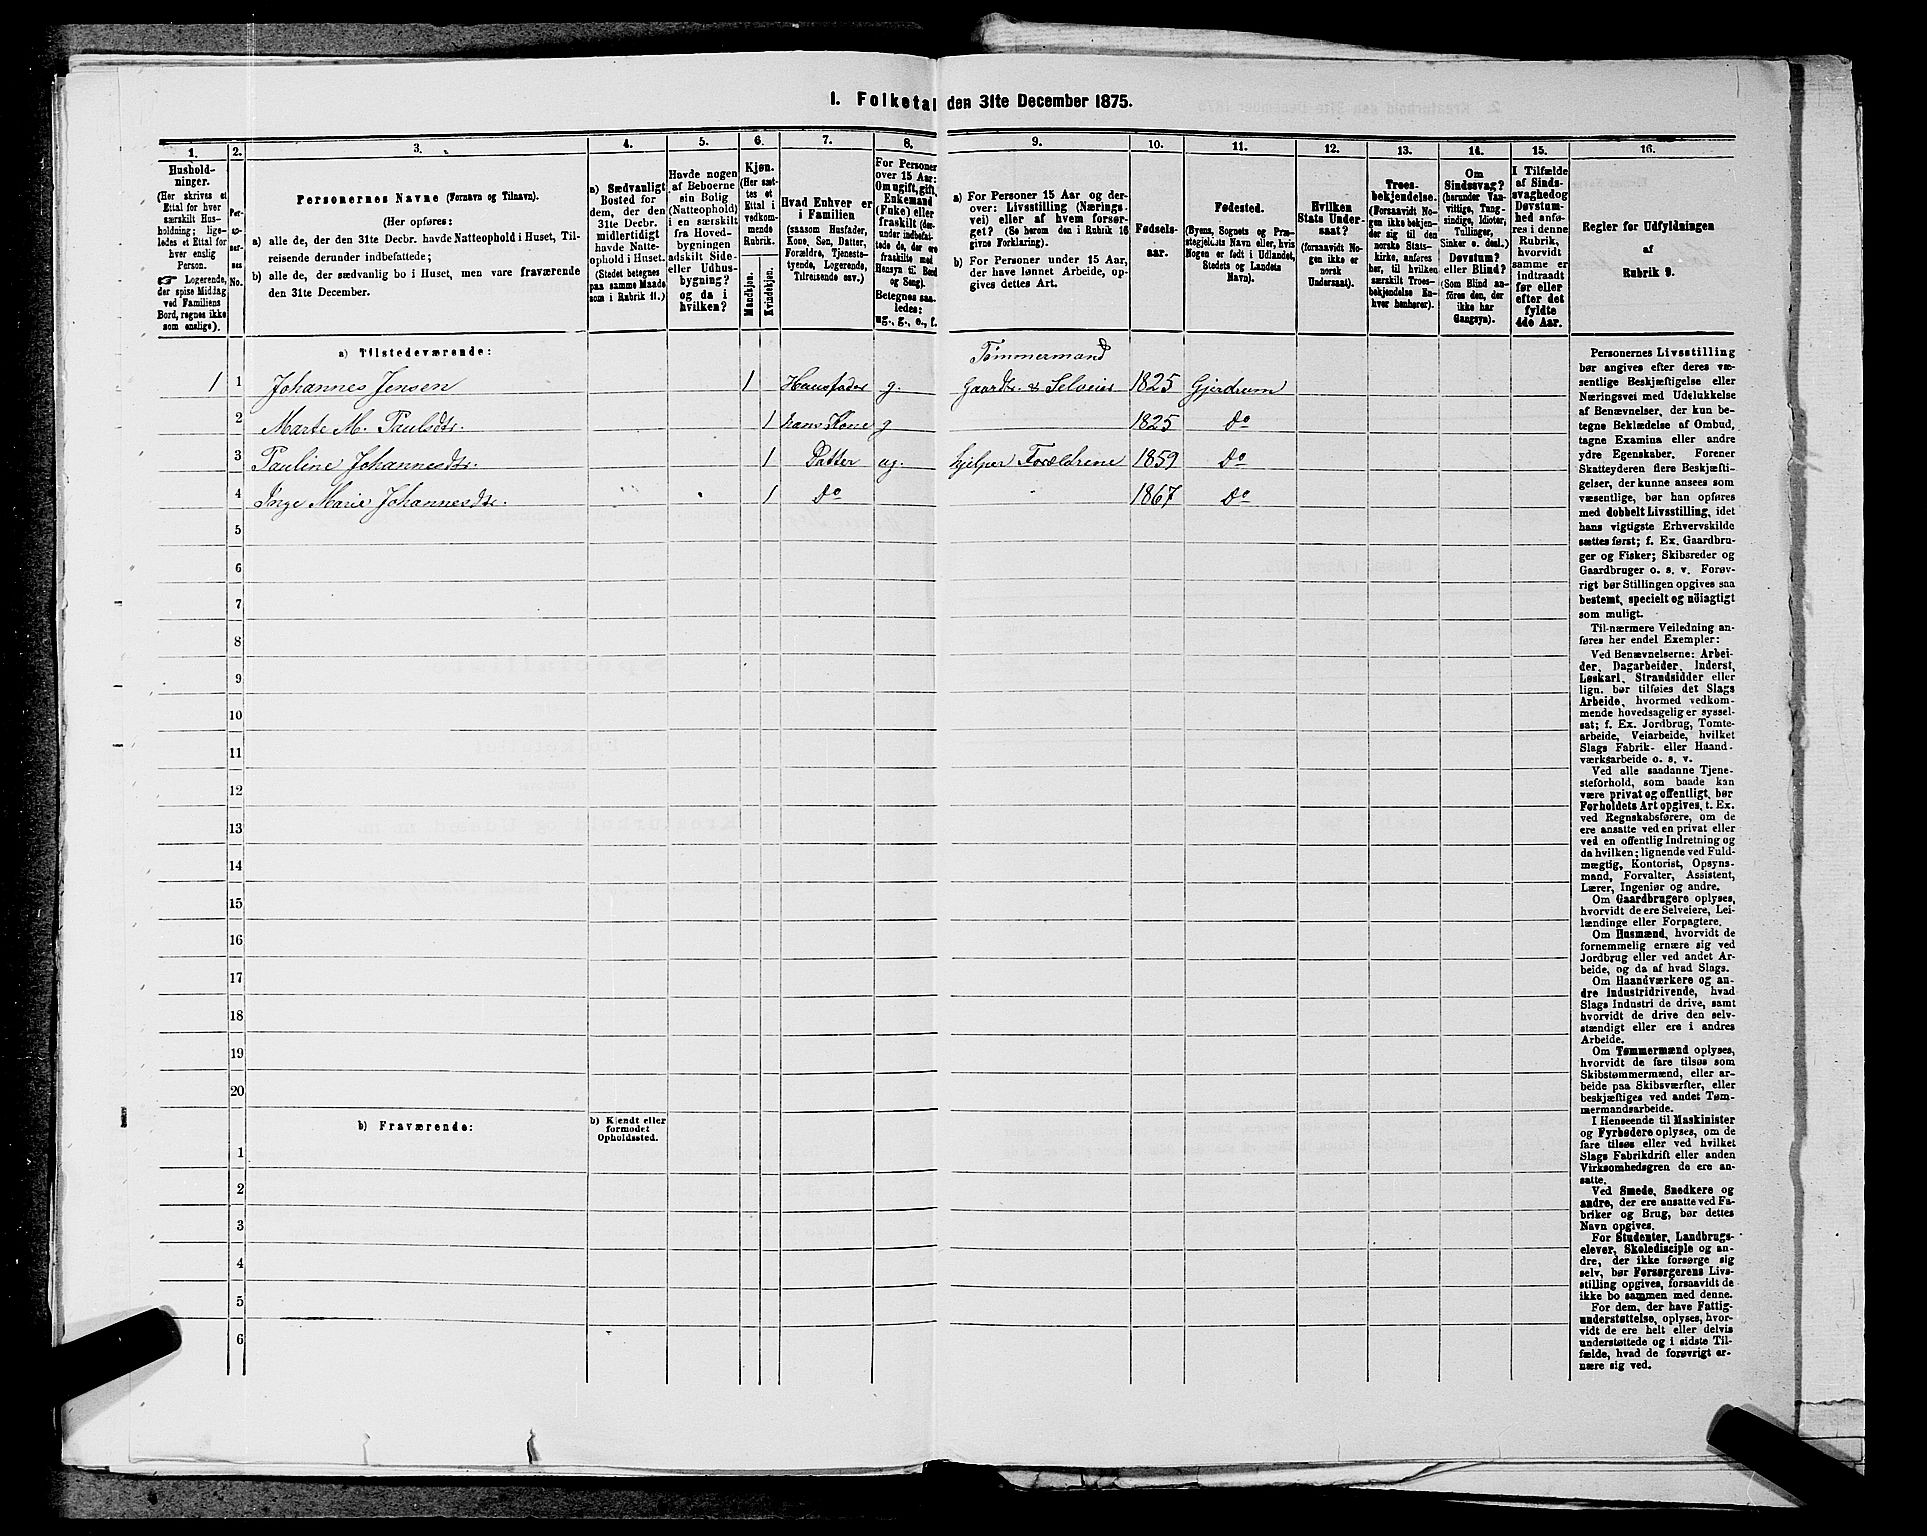 1. Folketal den 31te December 1875.
1.
2.
3.
4.
5.
6.
7.
8.
9.
10.
11.
12.
13.
14.
15.
16.
Hushold-
ninger.
(Her skrives et
Ettal for hver
særskilt Hus-
holdning; lige-
ledes et Ettal for
hver enslig
Person.
☞ Logerende,
der spise Middag
ved Familiens
Bord, regnes ikke
som enslige).
Per-
so-
ner-
nes
No.
Personernes Navne (Fornavn og Tilnavn).
(Her opføres:
a) alle de, der den 31te Decbr. havde Natteophold i Huset, Til-
reisende derunder indbefattede;
b) alle de, der sædvanlig bo i Huset, men vare fraværende
den 31te December.
a) Sædvanligt
Bosted for
dem, der den
31te Decbr.
midlertidigt
havde Natte-
ophold i Huset.
(Stedet betegnes
paa samme Maade
som i Rubrik 11.)
Havde nogen
af Beboerne
sin Bolig
(Natteophold)
i en særskilt
fra Hoved-
bygningen
adskilt Side-
eller Udhus-
bygning?
og da i
hvilken?
Kjøn.
(Her sæt-
tes et
Ettal i
vedkom-
mende
Rubrik.
Mandkjøn.
Kvindekjøn.
Hvad Enhver er
i Familien
(saasom Husfader,
Kone, Søn, Datter,
Forældre, Tjeneste-
tyende, Logerende,
Tilreisende osv.)
For Personer
over 15 Aar:
Om ugift, gift,
Enkemand
(Enke) eller
fraskilt (der-
under indbefat-
tede de, der ere
fraskilte med
Hensyn til Bord
og Seng).
Betegnes saa-
ledes:
ug., g., e., f.
a) For Personer 15 Aar og der-
over: Livsstilling (Nærings-
vei) eller af hvem forsør-
get? (Se herom den i Rubrik 16
givne Forklaring).
b) For Personer under 15 Aar,
der have lønnet Arbeide, op-
gives dettes Art.
Fødsels-
aar.
Fødested.
(Byens, Sognets og Præ-
stegjeldets Navn eller, hvis
Nogen er født i Udlandet,
Stedets og Landets
Navn).
Hvilken
Stats Under-
saat?
(forsaavidt No-
gen ikke er
norsk
Undersaat).
Troes-
bekjendelse.
(Forsaavidt No-
gen ikke bekjen-
der sig til den
norske Stats-
kirke, anføres
her, til hvilken
særskilt Troes-
bekjendelse En-
hver henhører).
Om
Sindssvag?
(herunder Van-
vittige, Tung-
sindige, Idioter,
Tullinger,
Sinker o. desl.)
Døvstum?
eller Blind?
(Som Blind an-
føres den, der
ikke har
Gangsyn).
I Tilfælde
af Sinds-
svaghed og
Døvstum-
hed anfø-
res i denne
Rubrik,
hvorvidt
samme er
indtraadt
før eller
efter det
fyldte
4de Aar.
Regler for Udfyldningen
af
Rubrik 9.
a) Tilstedeværende:
Tømmermand
1 1 Johannes Jensen 1 Huusfader g. Gaardbr. & Selveier 1825 Gjerdrum
2 Marte M. Paulsdtr. 1 hans Kone g 1825 Do
3 Pauline Johannesdtr. 1 Datter ug. hjelper Forældrene 1859 Do
4 Inge Marie Johannesdtr. 1 Do 1867 Do
5
6
7
8
9
10
11
12
13
14
15
16
17
18
19
20
b) Fraværende:
b) Kjendt eller
formodet
Opholdssted.
1
2
3
4
5
6
Personernes Livsstilling
bør angives efter deres væ-
sentlige Beskjæftigelse eller
Næringsvei med Udelukkelse
af Benævnelser, der kun be-
tegne Beklædelse af Ombud,
tagne Examina eller andre
ydre Egenskaber. Forener
Skatteyderen flere Beskjæfti-
gelser, der kunne ansees som
væsentlige, bør han opføres
med dobbelt Livsstilling, idet
hans vigtigste Erhvervskilde
sættes først; f. Ex. Gaardbru-
ger og Fisker; Skibsreder og
Gaardbruger o. s. v. Forøv-
rigt bør Stillingen opgives saa
bestemt, specielt og nöiagtigt
som muligt.
Til nærmere Veiledning an-
føres her endel Exempler:
Ved Benævnelserne: Arbei-
der, Dagarbeider, Inderst,
Løskarl, Strandsidder eller
lign. bør tilføies det Slags
Arbeide, hvormed vedkom-
mende hovedsagelig er syssel-
sat; f. Ex. Jordbrug, Tomte-
arbeide, Veiarbeide, hvilket
Slags Fabrik- eller Haand-
værksarbeide o. s. v.
Ved alle saadanne Tjene-
steforhold, som baade kan
være privat og offentligt, bør
Forholdets Art opgives, t. Ex.
ved Regnskabsførere, om de
ere ansatte ved en privat eller
ved en offentlig Indretning og
da hvilken; lignende ved Fuld-
mægtig, Kontorist, Opsyns-
mand, Forvalter, Assistent,
Lærer, Ingeniør og andre.
Om Gaardbrugere oplyses,
hvorvidt de ere Selveiere, Lei-
lændinge eller Forpagtere.
Om Husmænd, hvorvidt de
fornemmelig ernære sig ved
Jordbrug eller ved andet Ar-
beide, og da af hvad Slags.
Om Haandværkere og an-
dre industridrivende, hvad
Slags Industri de drive, samt
hvorvidt de drive den selv-
stændigt eller ere i andres
Arbeide.
Om Tømmermænd oplyses,
hvorvidt de fare tilsøs som
Skibstømmermænd, eller ar-
beide paa Skibsværfter, eller
beskjæftiges ved andet Tøm-
mermandsarbeide.
I Henseende til Maskinister
og Fyrbødere oplyses, om de
fare tilsøs eller ved hvilket
Slags Fabrikdrift eller anden
Virksomhedsgren de ere an-
satte.
Ved Smede, Snedkere og
andre, der ere ansatte ved Fa-
briker og Brug, bør dettes
Navn opgives.
For Studenter, Landbrugs-
elever, Skoledisciple og an-
dre, der ikke forsørge sig
selv, bør Forsørgerens Livs-
stilling opgives, forsaavidt de
ikke bo sammen med denne.
For dem, der have Fattig-
understøttelse, oplyses, hvor-
vidt de ere helt eller delvis
understøttede og i sidste Til-
fælde, hvad de forøvrigt er-
nære sig ved.